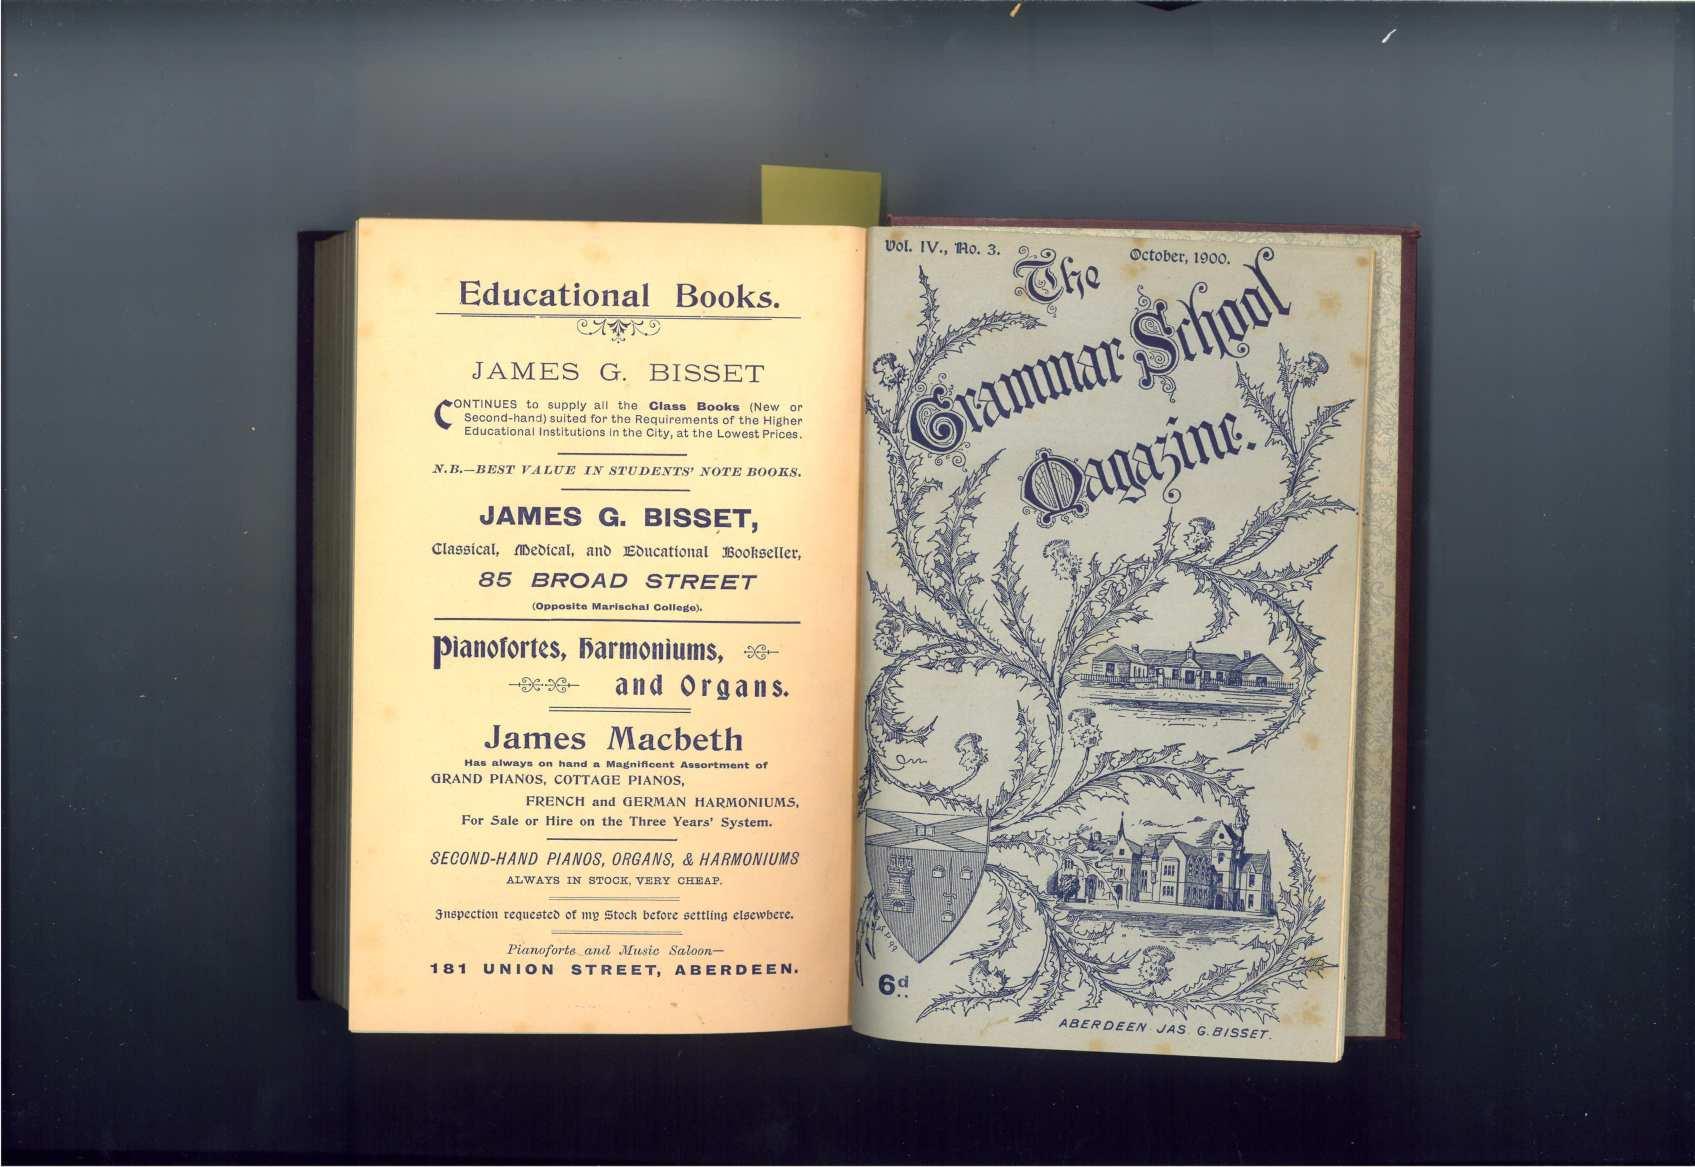 Educational Books.
JAMES G. BISSET
CONTINUES to supply all the Class Books (New or
Second-hand) suited for the Requirements of the Higher
Educational Institutions in the City, at the Lowest Prices.
N.B.—BEST VALUE IN STUDENTS' NOTE BOOKS.
JAMES G. BISSET,
Classical, Medical, and Educational Bookseller,
85 BROAD STREET
(Opposite Marischal College).
Pianofortes, Harmoniums,
and Organs.
James Macbeth
Has always on hand a Magnificent Assortment of
GRAND PIANOS, COTTAGE PIANOS,
FRENCH and GERMAN HARMONIUMS,
For Sale or Hire on the Three Years' System.
SECOND-HAND PIANOS, ORGANS, & HARMONIUMS
ALWAYS IN STOCK, VERY CHEAP.
Inspection requested of my Stock before settling elsewhere.
Pianoforte and Music Saloon—
181 UNION STREET, ABERDEEN.
Vol. IV., No. 3.
October, 1900.
The
Grammar School
Magazine.
6d
ABERDEEN JAS. G. BISSET.